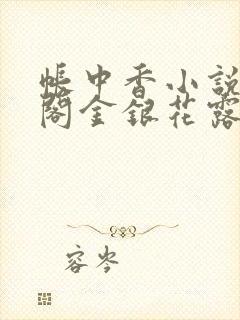 帐中香小說
閣金銀花露
容岑